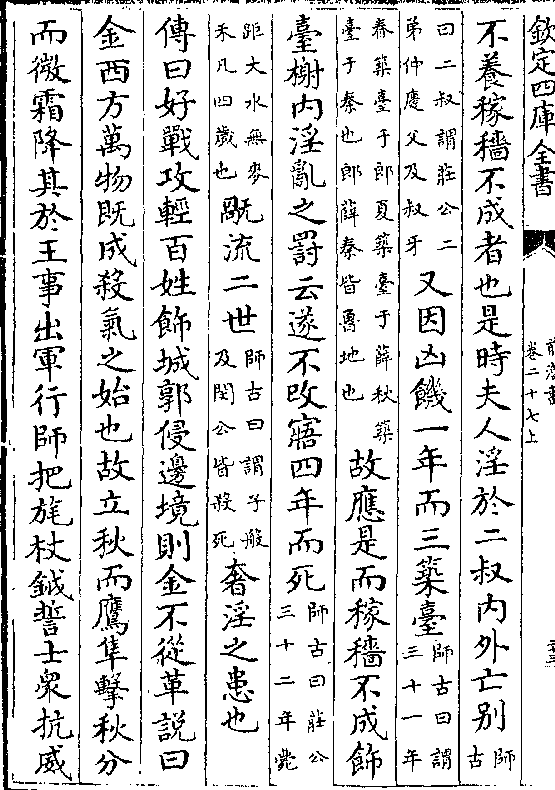 欽定四庫全書
前漢書
卷二十七上
不養稼穡不成者也是時夫人淫於二叔内外亡别師古
曰二叔謂莊公二弟仲慶父及叔牙又因凶饑一年而三築臺師古曰謂三十一年
春築臺于郎夏築臺于薛秋築臺于秦也郎薛秦皆魯地也故應是而稼穡不成飾
臺榭内淫亂之罰云遂不改寤四年而死師古曰莊公三十二年薨
距大水無麥禾凡四歲也旤流二世師古曰謂子般及閔公皆殺死奢淫之患也
傳曰好戰攻輕百姓飾城郭侵邊境則金不從革說曰
金西方萬物既成殺氣之始也故立秋而鷹隼擊秋分
而微霜降其於王事出軍行師把旄杖鉞誓士衆抗威